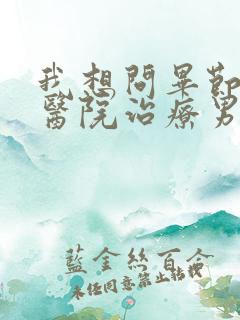 我想問畢節
醫院治療男
藍金絲百合
未任同意禁止轉載